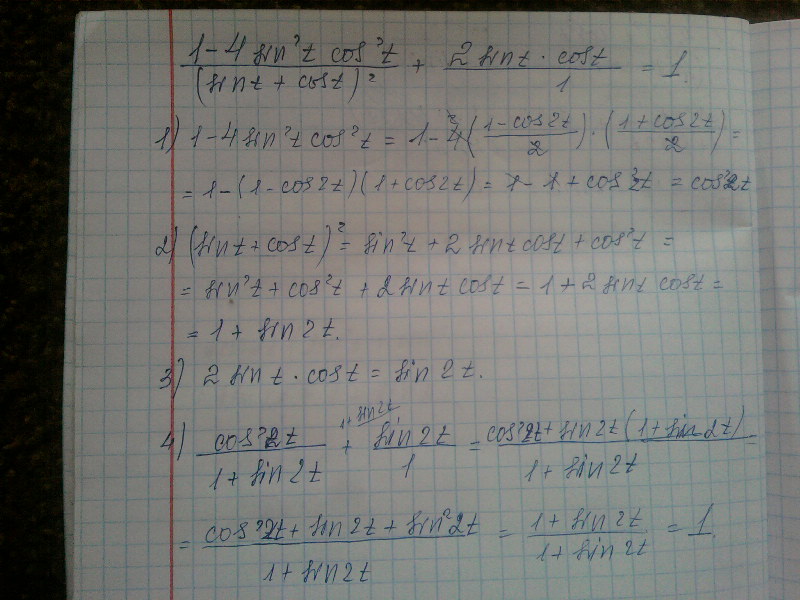 (1 - 4 sin²t cos²t)/(sin t + cos t)² + (2 sin t · cos t)/1 = 1.
1) 1 - 4 sin²t cos²t = 1 - 4((1 - cos 2t)/2) · ((1 + cos 2t)/2) =
= 1 - (1 - cos 2t)(1 + cos 2t) = 1 - 1 + cos²2t = cos²2t
2) (sin t + cos t)² = sin²t + 2 sin t cos t + cos²t =
= sin²t + cos²t + 2 sin t cos t = 1 + 2 sin t cos t =
= 1 + sin 2t.
3) 2 sin t · cos t = sin 2t.
4) (cos²2t)/(1 + sin 2t) + (sin 2t)/1 = (cos²2t + sin 2t (1 + sin 2t))/(1 + sin 2t) =
= (cos²2t + sin 2t + sin²2t)/(1 + sin 2t) = (1 + sin 2t)/(1 + sin 2t) = 1.